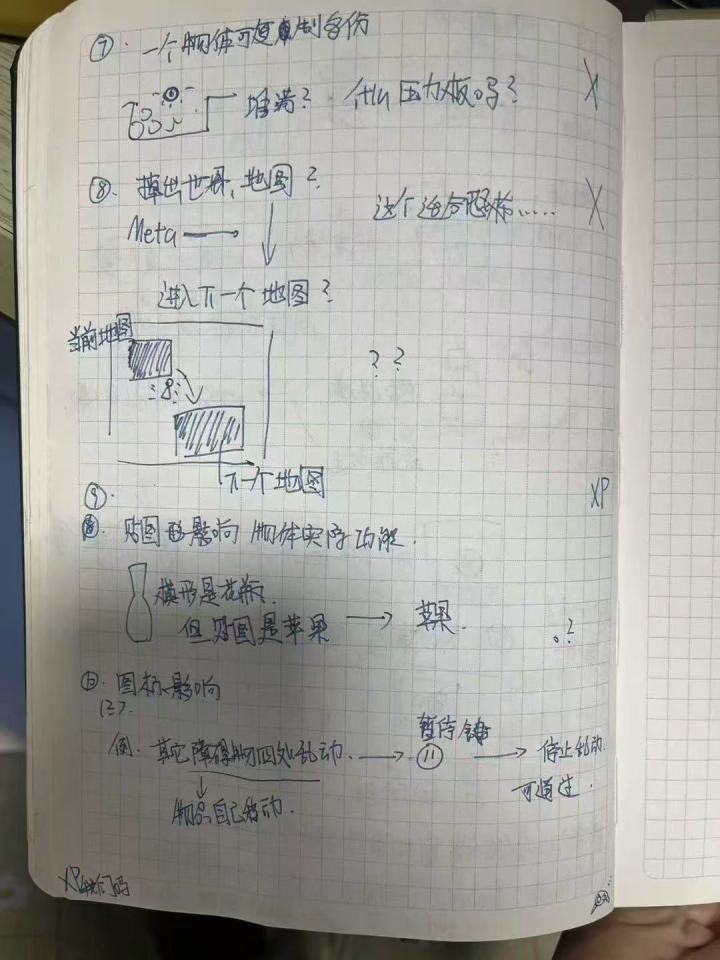 ⑦. 一个物体可复制多份
堆满? 什么压力板吗? X
⑧. 掉出世界,地图? 这个适合恐怖…… X
Meta →
进入下一个地图?
当前地图
? ?
下一个地图
⑨. XP
贴图影响物体实际功能.
模形是花瓶,
但贴图是苹果 → 苹果. ?
⑩. 图标影响
例. 其它障碍物四处乱动. → 暂停键 → 停止乱动.
可通过.
物品自己移动.